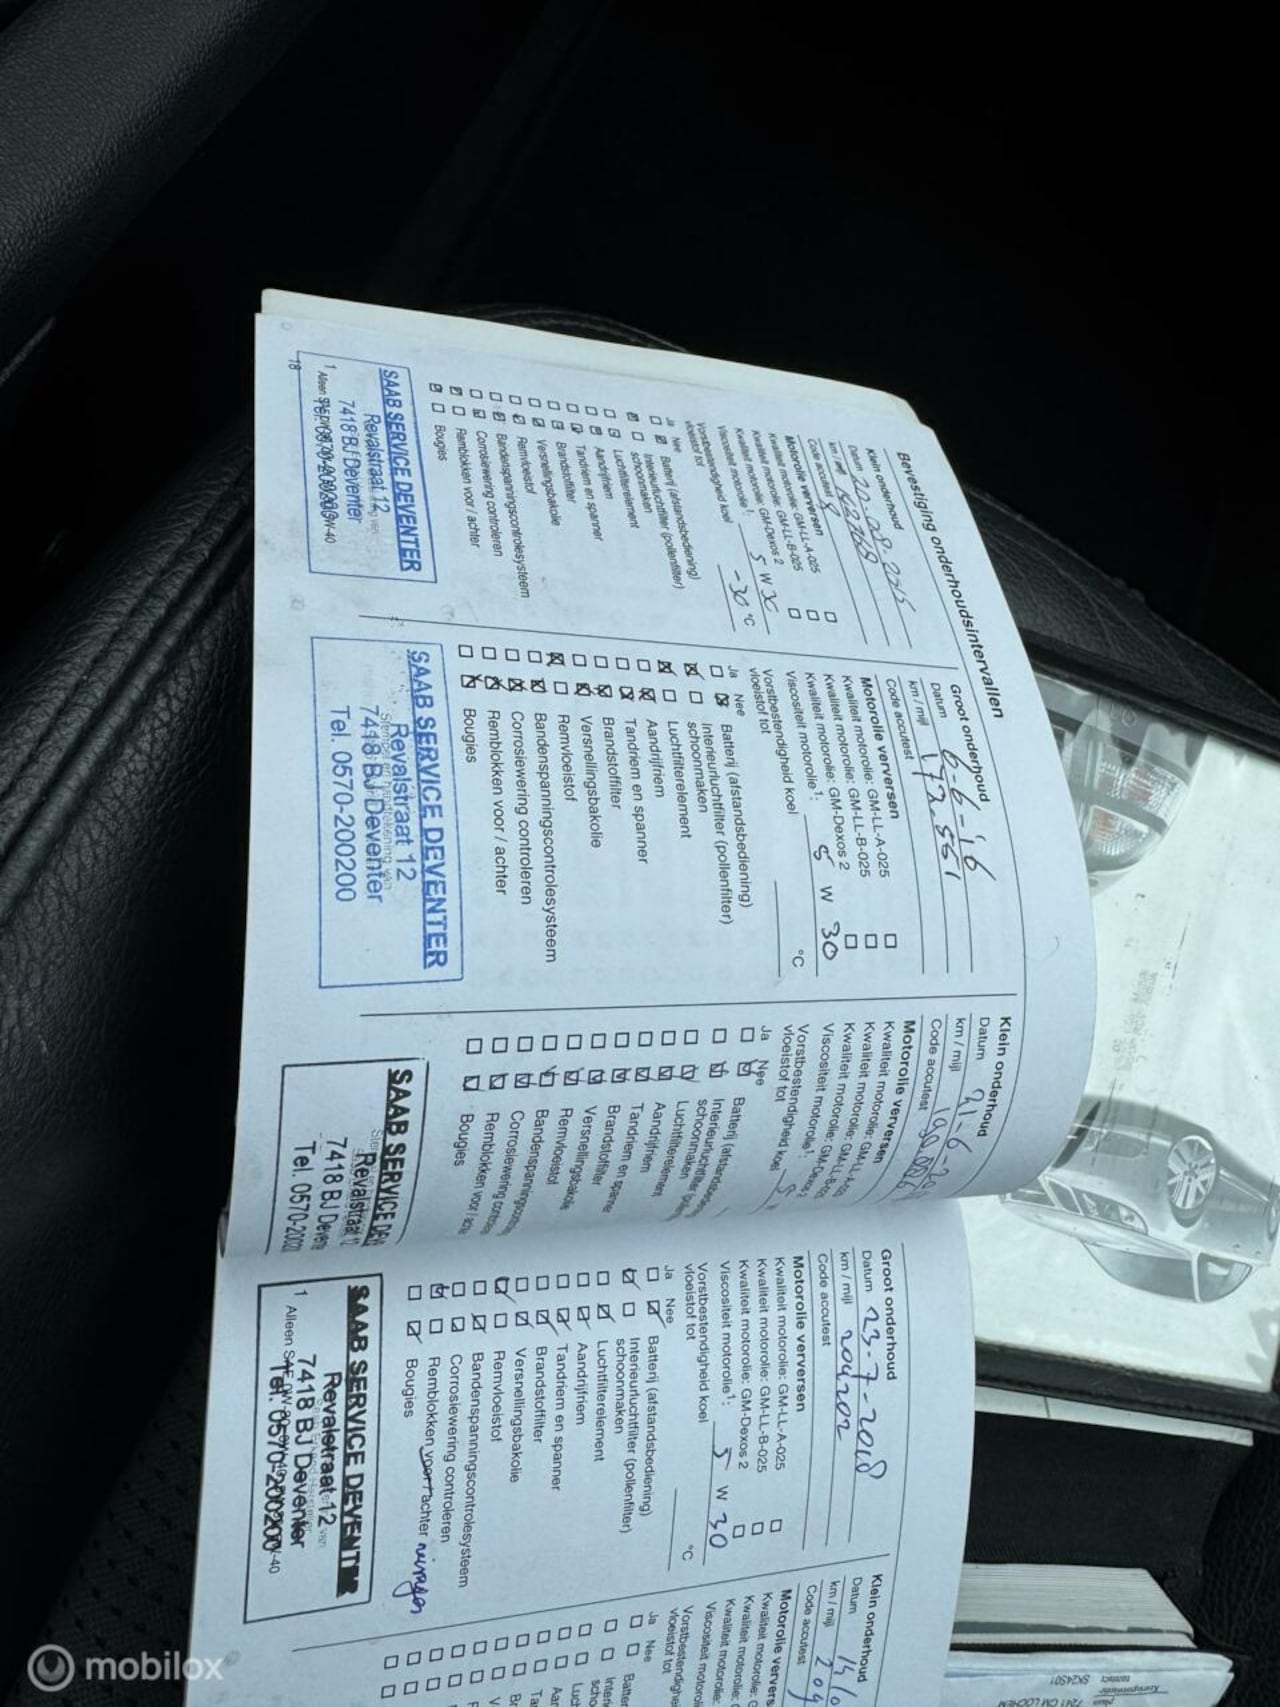 Bevestiging onderhoudsintervallen
Klein onderhoud
Datum 20-08-2015
km / mijl
Code accutest
Motorolie verversen
Kwaliteit motorolie: GM-LL-A-025
Kwaliteit motorolie: GM-LL-B-025
Kwaliteit motorolie: GM-Dexos 2
Viscositeit motorolie¹: 5 W 30
Vorstbestendigheid koel
vloeistof tot -30 °C
Ja Nee
Batterij (afstandsbediening)
Interieurluchtfilter (pollenfilter)
schoonmaken
Luchtfilterelement
Aandrijfriem
Tandriem en spanner
Brandstoffilter
Versnellingsbakolie
Remvloeistof
Bandenspanningscontrolesysteem
Corrosiewering controleren
Remblokken voor / achter
Bougies
SAAB SERVICE DEVENTER
Revalstraat 12
7418 BJ Deventer
Tel. 0570-200200
18
Groot onderhoud
Datum 6-6-'16
km / mijl 172.551
Code accutest
Motorolie verversen
Kwaliteit motorolie: GM-LL-A-025
Kwaliteit motorolie: GM-LL-B-025
Kwaliteit motorolie: GM-Dexos 2
Viscositeit motorolie¹: 5 W 30
Vorstbestendigheid koel
vloeistof tot °C
Ja Nee
Batterij (afstandsbediening)
Interieurluchtfilter (pollenfilter)
schoonmaken
Luchtfilterelement
Aandrijfriem
Tandriem en spanner
Brandstoffilter
Versnellingsbakolie
Remvloeistof
Bandenspanningscontrolesysteem
Corrosiewering controleren
Remblokken voor / achter
Bougies
SAAB SERVICE DEVENTER
Revalstraat 12
7418 BJ Deventer
Tel. 0570-200200
Klein onderhoud
Datum 21-6-20
km / mijl
Code accutest
Motorolie verversen
Kwaliteit motorolie: GM-LL-A-025
Kwaliteit motorolie: GM-LL-B-025
Kwaliteit motorolie: GM-Dexos 2
Viscositeit motorolie¹: 5
Vorstbestendigheid koel
vloeistof tot
Ja Nee
Batterij (afstandsbe
Interieurluchtfilter
schoonmaken
Luchtfilterelement
Aandrijfriem
Tandriem en spanner
Brandstoffilter
Versnellingsbakolie
Remvloeistof
Bandenspanningscontr
Corrosiewering controle
Remblokken voor / achte
Bougies
SAAB SERVICE DEV
Revalstraat 12
7418 BJ Devente
Tel. 0570-2002
Groot onderhoud
Datum 23-7-2018
km / mijl 204202
Code accutest
Motorolie verversen
Kwaliteit motorolie: GM-LL-A-025
Kwaliteit motorolie: GM-LL-B-025
Kwaliteit motorolie: GM-Dexos 2
Viscositeit motorolie¹: 5 W 30
Vorstbestendigheid koel
vloeistof tot °C
Ja Nee
Batterij (afstandsbediening)
Interieurluchtfilter (pollenfilter)
schoonmaken
Luchtfilterelement
Aandrijfriem
Tandriem en spanner
Brandstoffilter
Versnellingsbakolie
Remvloeistof
Bandenspanningscontrolesysteem
Corrosiewering controleren
Remblokken voor / achter
Bougies
SAAB SERVICE DEVENTER
Revalstraat 12
7418 BJ Deventer
Tel. 0570-200200
Klein onderhoud
Datum
km / mijl
Code accutest
Motorolie ververs
Kwaliteit motorolie:
Kwaliteit motorolie:
Kwaliteit motorolie:
Viscositeit motoro
Vorstbestendighe
vloeistof tot
Ja Nee
7241 CM LOCHEM
SK24S01
mobilox